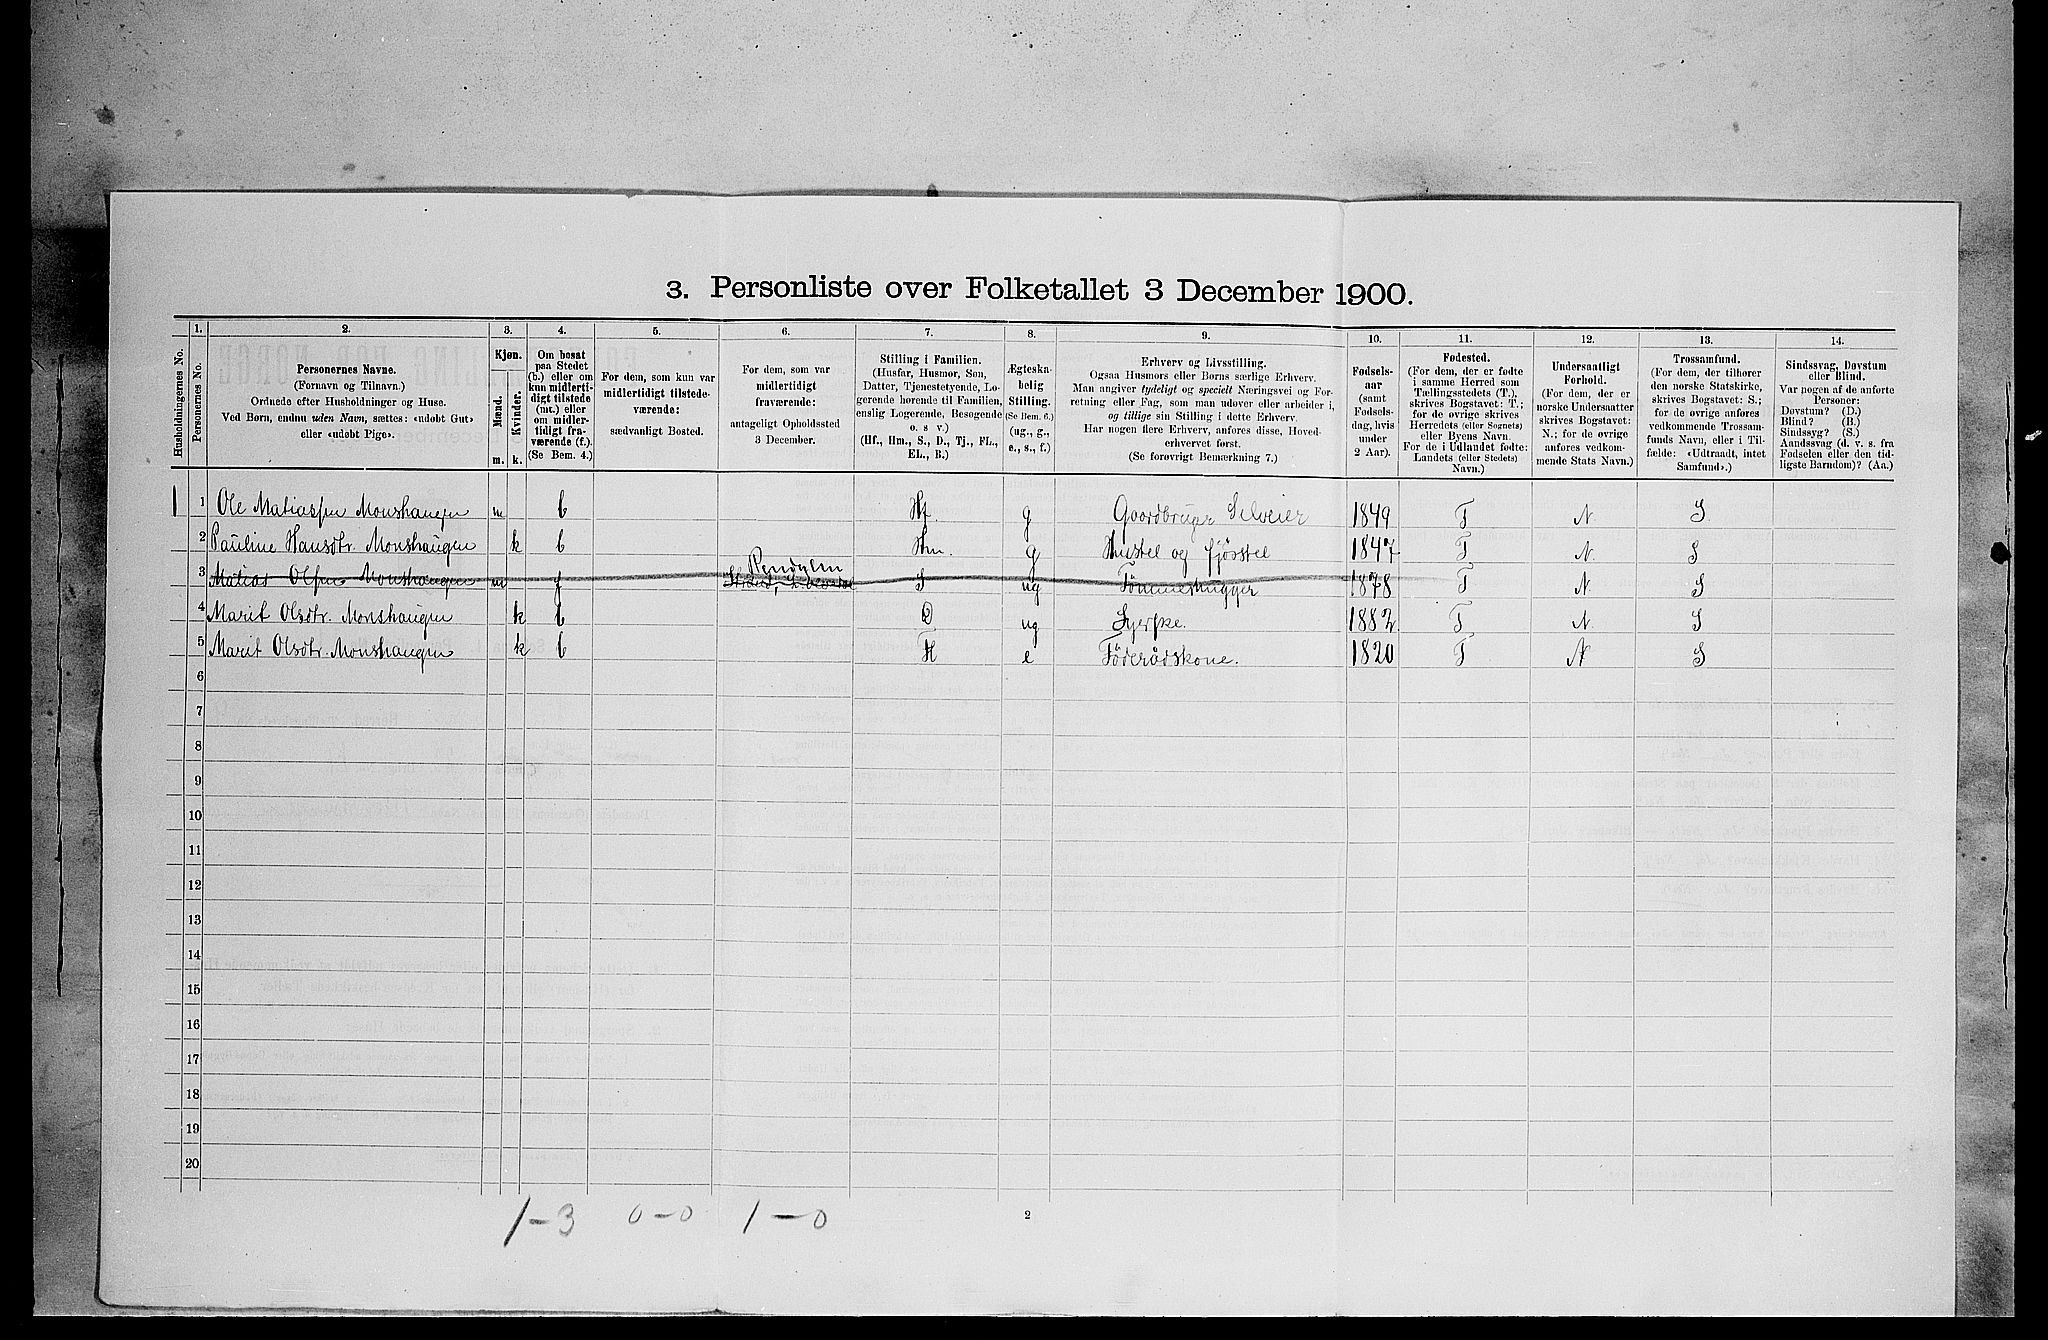 3. Personliste over Folketallet 3 December 1900.
Husholdningernes No.
1.
Personernes No.
2.
Personernes Navne.
(Fornavn og Tilnavn.)
Ordnede efter Husholdninger og Huse.
Ved Børn, endnu uden Navn, sættes: «udøbt Gut»
eller «udøbt Pige».
3.
Kjøn.
Mænd.
Kvinder.
m. k.
4.
Om bosat
paa Stedet
(b.) eller om
kun midlerti-
digt tilstede
(mt.) eller
om midler-
tidigt fra-
værende (f.).
(Se Bem. 4.)
5.
For dem, som kun var
midlertidigt tilstede-
værende:
sædvanligt Bosted.
6.
For dem, som var
midlertidigt
fraværende:
antageligt Opholdssted
3 December.
7.
Stilling i Familien.
(Husfar, Husmor, Søn,
Datter, Tjenestetyende, Lo-
gerende hørende til Familien,
enslig Logerende, Besøgende
o. s v.)
(Hf., Hm., S., D., Tj., FL.,
EL., B.)
8.
Ægteska-
belig
Stilling.
(Se Bem. 6.)
(ug., g.,
e., s., f.)
9.
Erhverv og Livsstilling.
Ogsaa Husmors eller Børns særlige Erhverv.
Man angiver tydeligt og specielt Næringsvei og For-
retning eller Fag, som man udøver eller arbeider i,
og tillige sin Stilling i dette Erhverv.
Har nogen flere Erhverv, anføres disse, Hoved-
erhvervet først.
(Se forøvrigt Bemærkning 7.)
10.
Fødsels-
aar
(samt
Fødsels-
dag, hvis
under
2 Aar).
11.
Fødested.
(For dem, der er fødte
i samme Herred som
Tællingsstedets (T.),
skrives Bogstavet: T.;
for de øvrige skrives
Herredets (eller Sognets)
eller Byens Navn.
For de i Udlandet fødte:
Landets (eller Stedets)
Navn.)
12.
Undersaatligt
Forhold.
(For dem, der er
norske Undersaatter
skrives Bogstavet:
N.; for de øvrige
anføres vedkom-
mende Stats Navn.)
13.
Trossamfund.
(For dem, der tilhører
den norske Statskirke,
skrives Bogstavet: S.;
for de øvrige anføres
vedkommende Trossam-
funds Navn, eller i Til-
fælde: «Udtraadt, intet
Samfund».)
14.
Sindssvag, Døvstum
eller Blind.
Var nogen af de anførte
Personer:
Døvstum? (D.)
Blind? (B.)
Sindssyg? (S.)
Aandssvag (d. v. s. fra
Fødselen eller den tid-
ligste Barndom)? (Aa.)
1 Ole Matiassen Monshaugen m b Hf. g Gaardbruger Selveier 1849 T N S.
2 Pauline Hansdtr. Monshaugen k b Hm. g Hustel og fjösstel 1847 T N. S
3 Matias Olsen Monshaugen m f Pendylen S ug Tømmerhugger 1878 T N. S
4 Marit Olsdtr. Monshaugen k b D ug Syerske. 1882 T N. S
5 Marit Olsdtr. Monshaugen k b H e Föderådskone. 1820 T N S
6
7
8
9
10
11
12
13
14
15
16
17
18
19
20
1-3 0-0 1-0
2